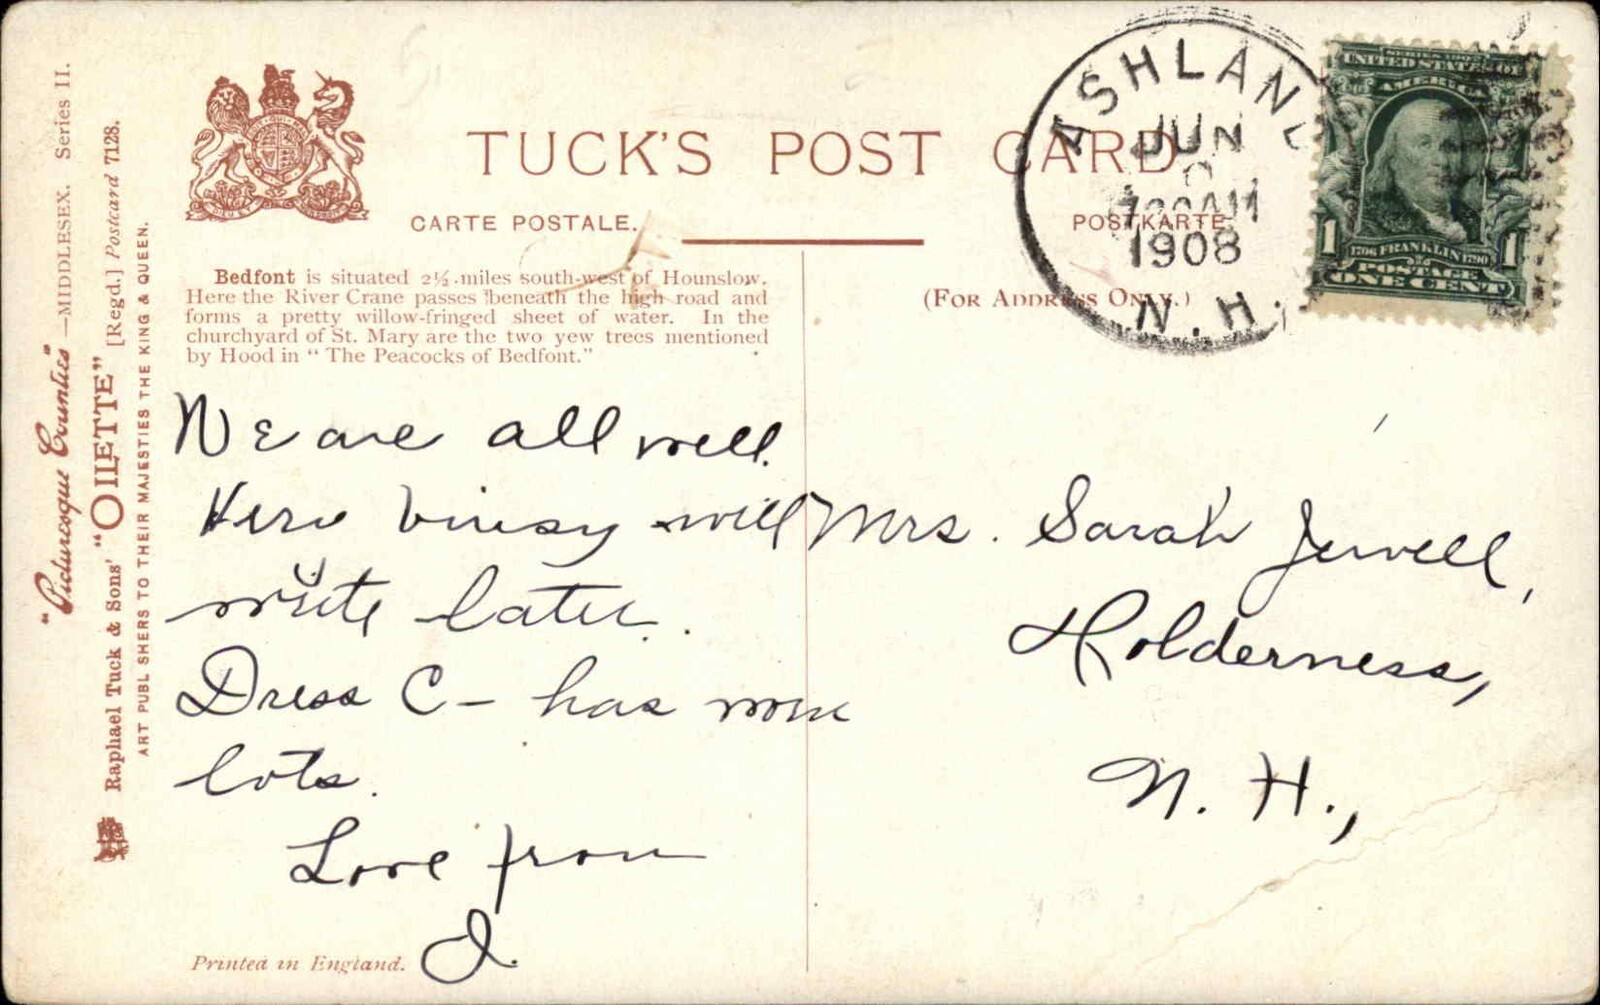 "Picturesque Counties"—MIDDLESEX. Series II.
Raphael Tuck & Sons' "OILETTE" [Regd.] Postcard 7128.
ART PUBLISHERS TO THEIR MAJESTIES THE KING & QUEEN.
TUCK'S POST CARD
CARTE POSTALE.
POSTKARTE
(FOR ADDRESS ONLY.)
Bedfont is situated 2½ miles south-west of Hounslow.
Here the River Crane passes beneath the high road and
forms a pretty willow-fringed sheet of water. In the
churchyard of St. Mary are the two yew trees mentioned
by Hood in "The Peacocks of Bedfont."
ASHLAND
JUN
AM
1908
N.H.
SERIES 1902
UNITED STATES OF
AMERICA
1 1706 FRANKLIN 1790 1
POSTAGE
ONE CENT
We are all well.
will
write later.
Dress C- has
lots.
Love from
J.
Mrs. Sarah Jewell,
Holderness,
N. H.,
Printed in England.